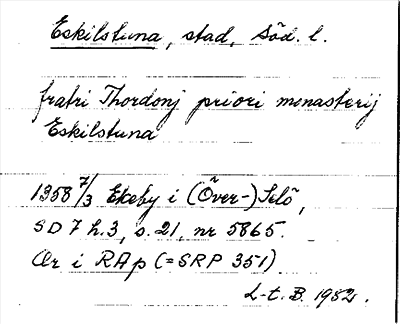 Eskilstuna, stad, Söd. l.
fratri Thordonj priori monasterij
Eskilstuna
1358 7/3 Ekeby i (Över-)Selö,
SD 7 h.3, s. 21, nr 5865.
Or i RAp (=SRP 351)
L-t. B. 1982.